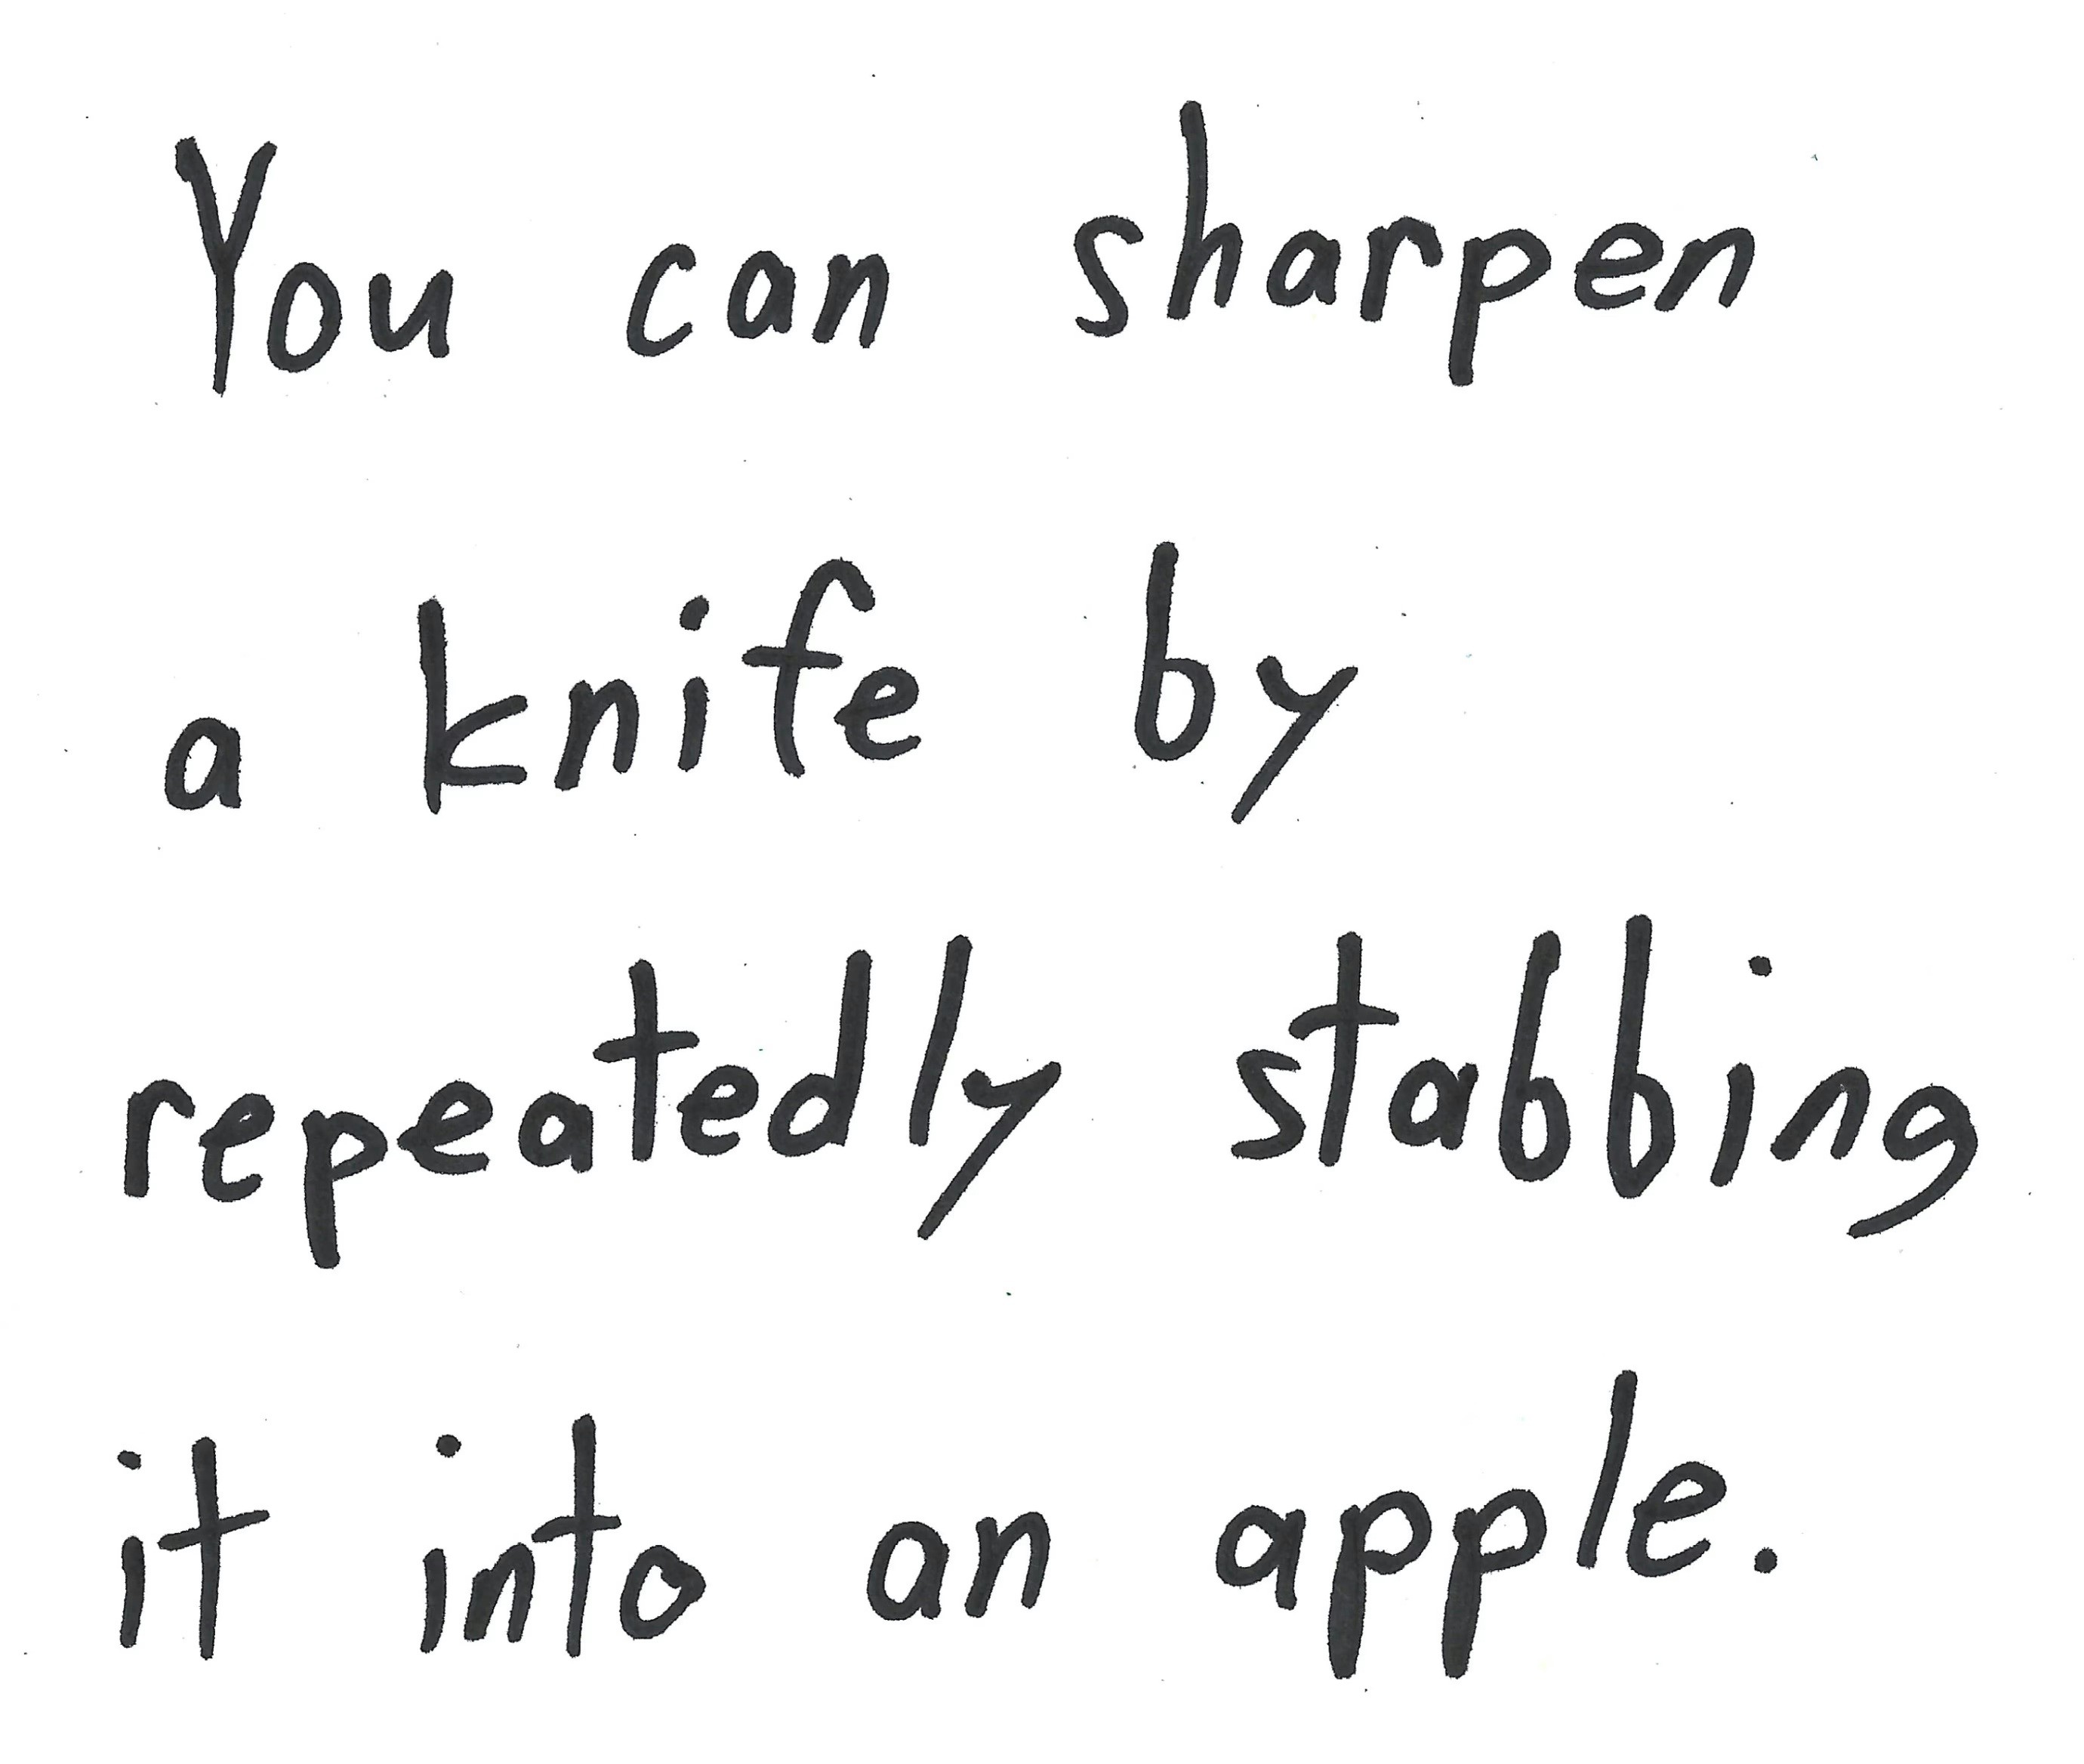 You can sharpen
a knife by
repeatedly stabbing
it into an apple.